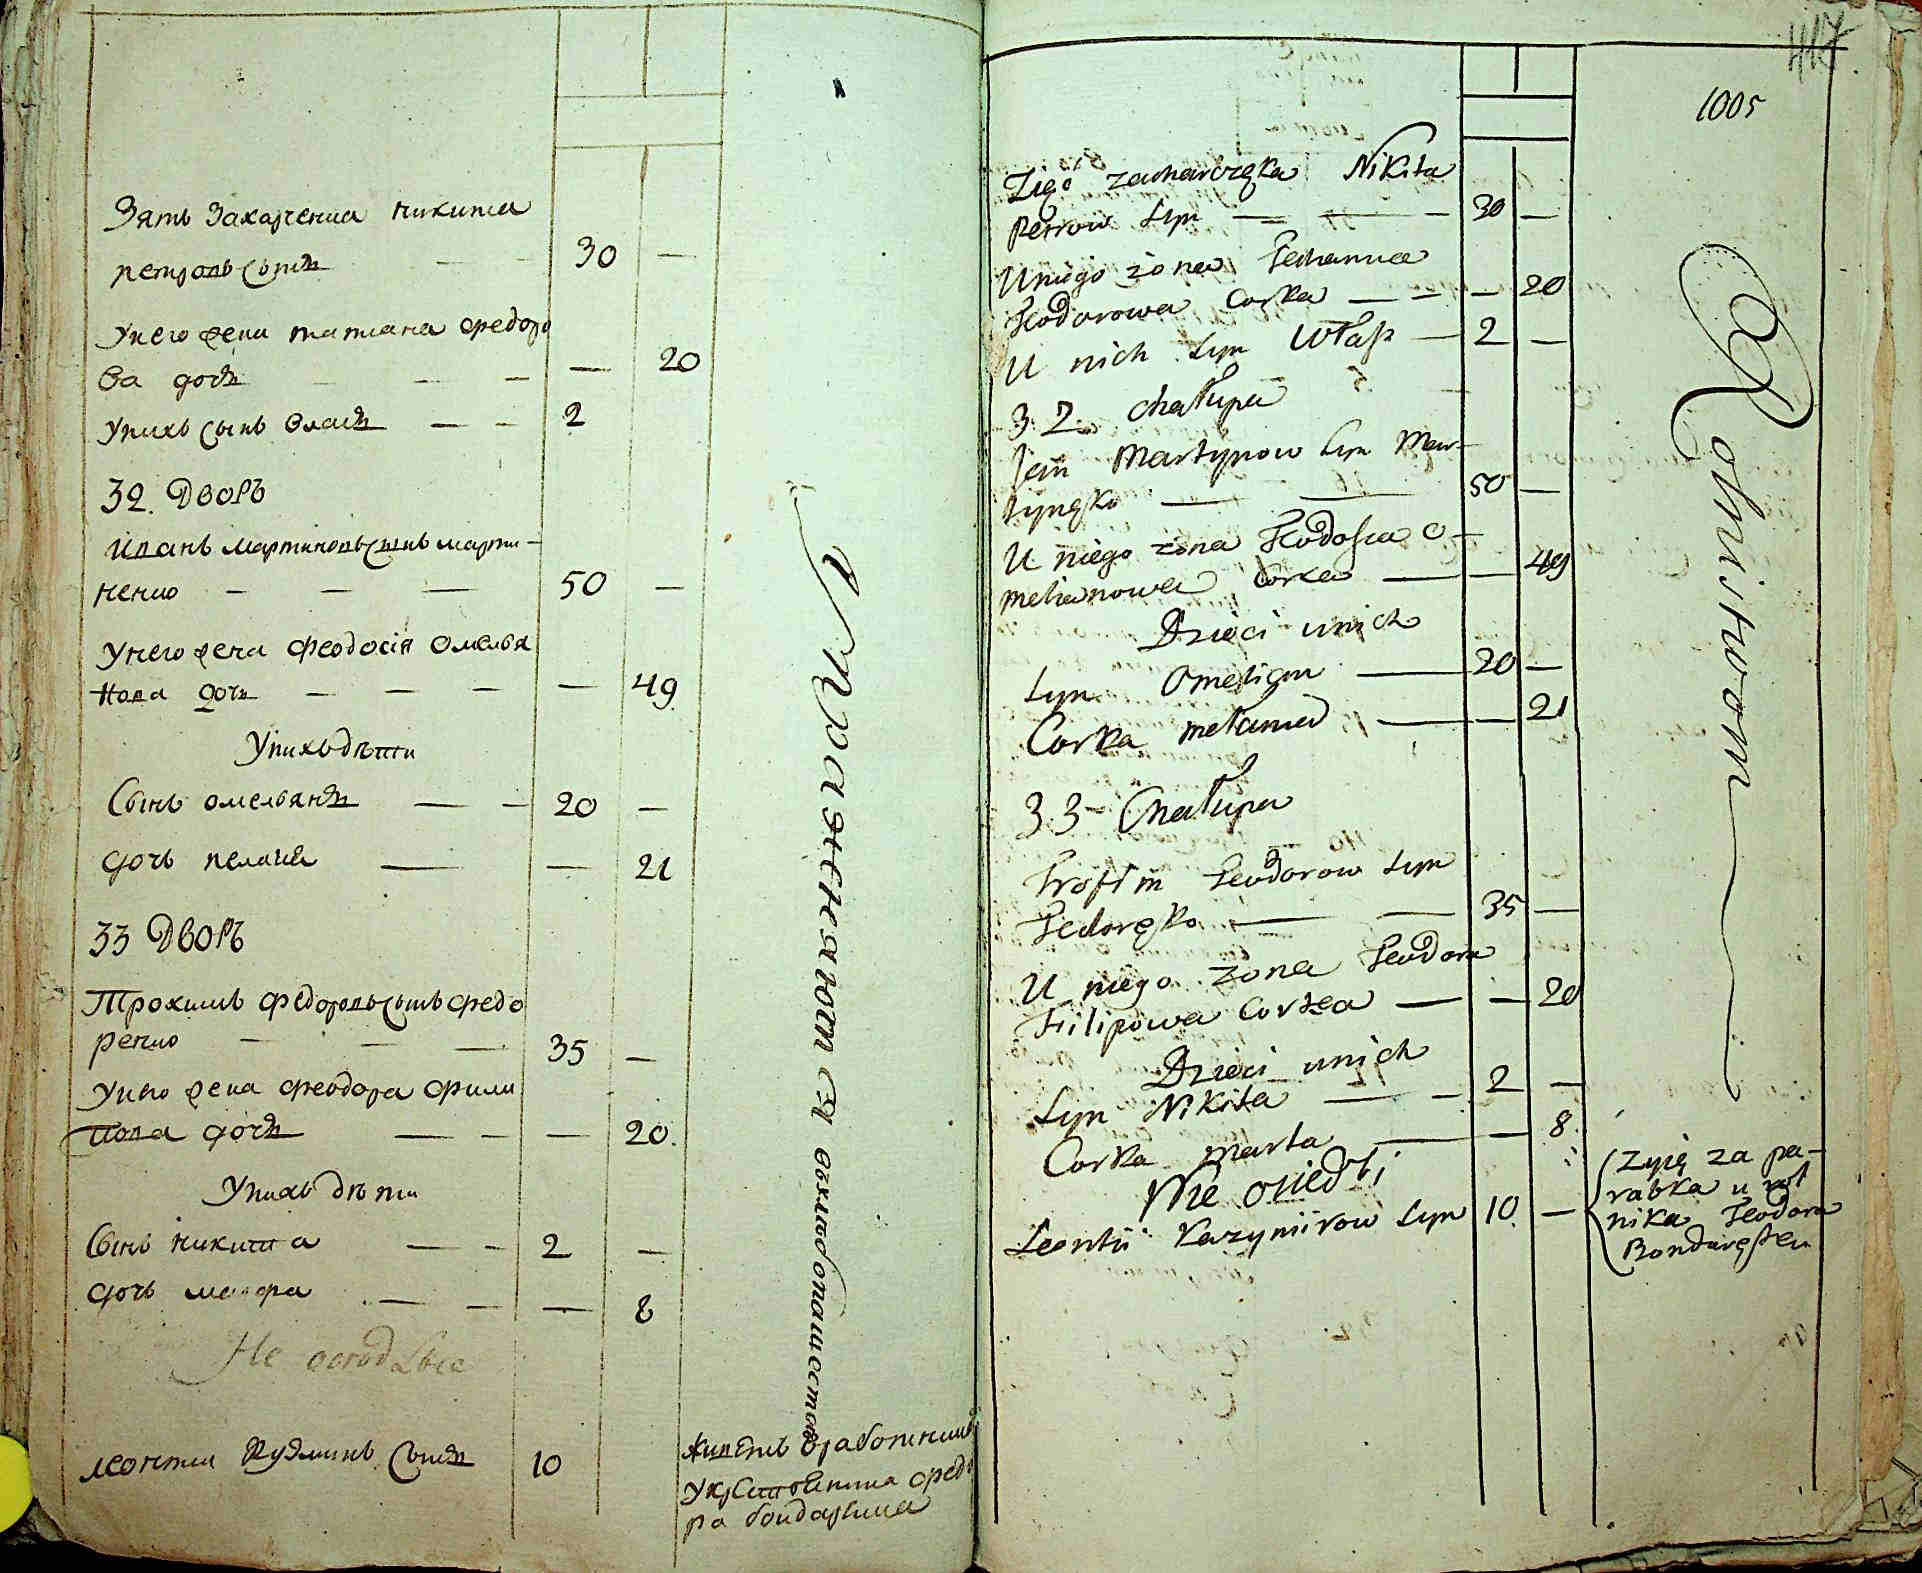 Зять Захарченка никита
петровъ сынъ — — 30 —
Унего жена татиана федоро
ва дочь — — — — 20
Унихъ сынъ власъ — — 2
32. Дворъ
Иванъ мартиновъ сынъ марти-
ненко — — — 50 —
Унего жена феодосія Омелья
нова дочь — — — — 49
Унихъ дѣти
Сынъ омельянъ — — 20 —
дочь мелания — — 21
33 Дворъ
Трохимъ федоровъ сынъ федо
ренко — — — 35 —
Унего жена феодора фили
пова дочь — — — 20.
Унихъ дѣти
Сынъ никита — — 2 —
дочь марфа — — — 8
Не оседлые
леонтии сынъ 10
живетъ
бондаренка
Упражняются вхлѣбопашествѣ
417
1005
Zięć zacharczęka Nikita
Petrow Syn — — — 30 —
U niego żona
Teodorowa Corka — — — 20
U nich Syn Własz — 2 —
32. chałupa
Jan Martynow Syn Mar-
tynęko — — 50 —
U niego zona Teodosia O-
melianowa Corka — — 49
Dzieci unich
Syn Omelian — 20 —
Corka melania — — 21
33 Chałupa
Trofim Teodorow Syn
Fedoręko — — 35 —
U niego zona Teodora
Filipowa Corka — — 20
Dzieci unich
Syn Nikita — — 2 —
Corka marta — — 8
Nie osiedli
Leontii Kazymirow Syn 10. —
Zyię za pa-
rabka u rol
nika Teodora
Rolnistwom